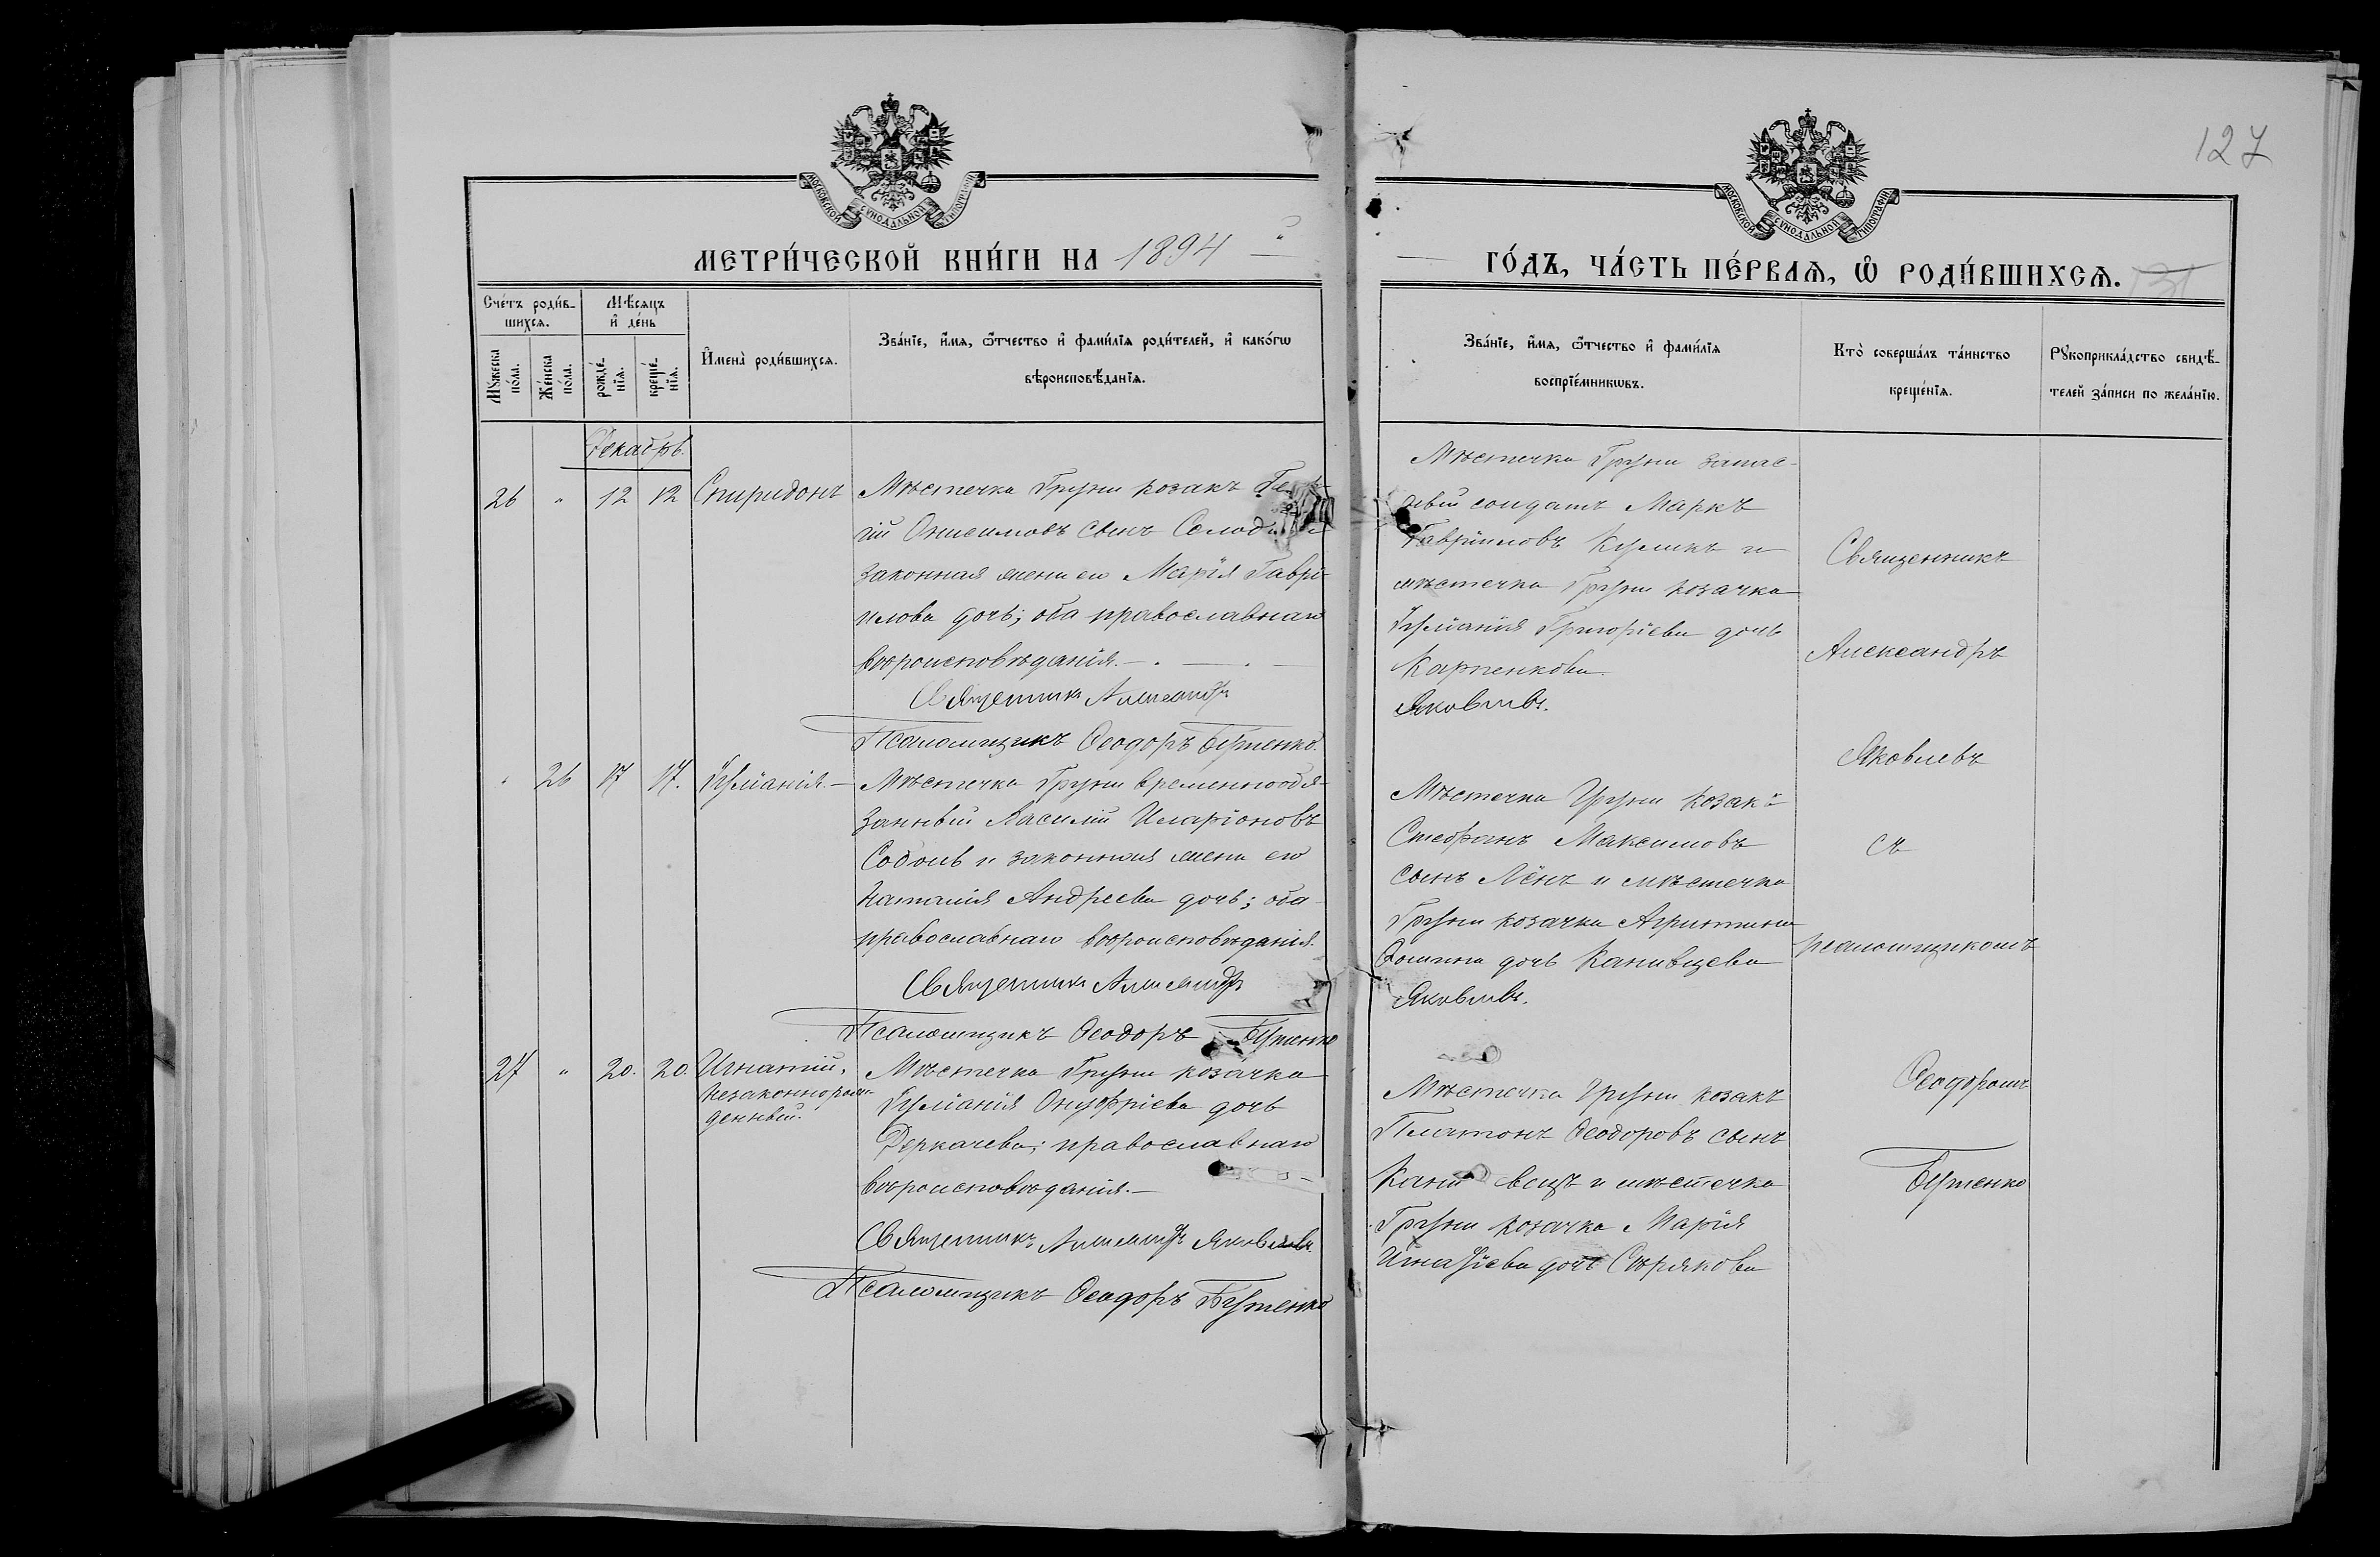 127
МОСКОВСКОЙ СѴНОДАЛЬНОЙ ТИПОГРАФІИ
МОСКОВСКОЙ СѴНОДАЛЬНОЙ ТИПОГРАФІИ
МЕТРИ́ЧЕСКОЙ КНИ́ГИ НА 1894
ГО́ДЪ, ЧА́СТЬ ПЕ́РВАѦ, Ѡ РОДИ́ВШИХСѦ.
Сче́тъ роди́в-
шихсѧ.
Мꙋ́жеска по́ла.
Же́нска по́ла.
Мѣ́сѧцъ
и҆ де́нь
рожде́-
нїѧ.
креще́-
нїѧ.
И҆мена̀ роди́вшихсѧ.
Зва́нїе, и҆́мѧ, ѻ҆́тчество и҆ фами́лїѧ роди́телей, и҆ како́гѡ
вѣроисповѣ́данїѧ.
Зва́нїе, и҆́мѧ, ѻ҆́тчество и҆ фами́лїѧ
воспрїе́мникѡвъ.
Кто̀ соверша́лъ та́инство
креще́нїѧ.
Рꙋкоприкла́дство свидѣ́-
телей за́писи по жела́нїю.
Декабрь.
26 " 12 12 Спиридонъ
Мѣстечка Груни козакъ
гій Онисимовъ сынъ
законная жена его Марія Гаврі-
илова дочь; оба православнаго
вѣроисповѣданія.
Священникъ Александръ
Псаломщикъ Ѳеодоръ Бутенко.
Мѣстечка Груни запас-
ный солдатъ Маркъ
Гавріиловъ Куликъ и
мѣстечка Груни козачка
Іуліанія Григоріева дочь
Карпенкова.
Яковлевъ.
" 26 17 17. Іуліанія.
Мѣстечка Груни временнообя-
занный Василій Иларіоновъ
Соболь и законная жена его
Наталія Андреева дочь; оба
православнаго вѣроисповѣданія.
Священникъ Александръ
Псаломщикъ Ѳеодоръ Бутенко
Мѣстечка Груни козакъ
Стефанъ Максимовъ
сынъ Лёнъ и мѣстечка
Груни козачка Агриппина
Ѳомина дочь Канивцева
Яковлевъ.
27 " 20. 20. Игнатій,
незаконнорож-
денный.
Мѣстечка Груни козачка
Іуліанія Онуфріева дочь
Деркачева; православнаго
вѣроисповѣданія.
Священникъ Александръ Яковлевъ.
Псаломщикъ Ѳеодоръ Бутенко
Мѣстечка Груни козакъ
Платонъ Ѳеодоровъ сынъ
Канивецъ и мѣстечка
Груни козачка Марія
Игнатіева дочь Сѣрякова
Священникъ
Александръ
Яковлевъ
съ
псаломщикомъ
Ѳеодоромъ
Бутенко